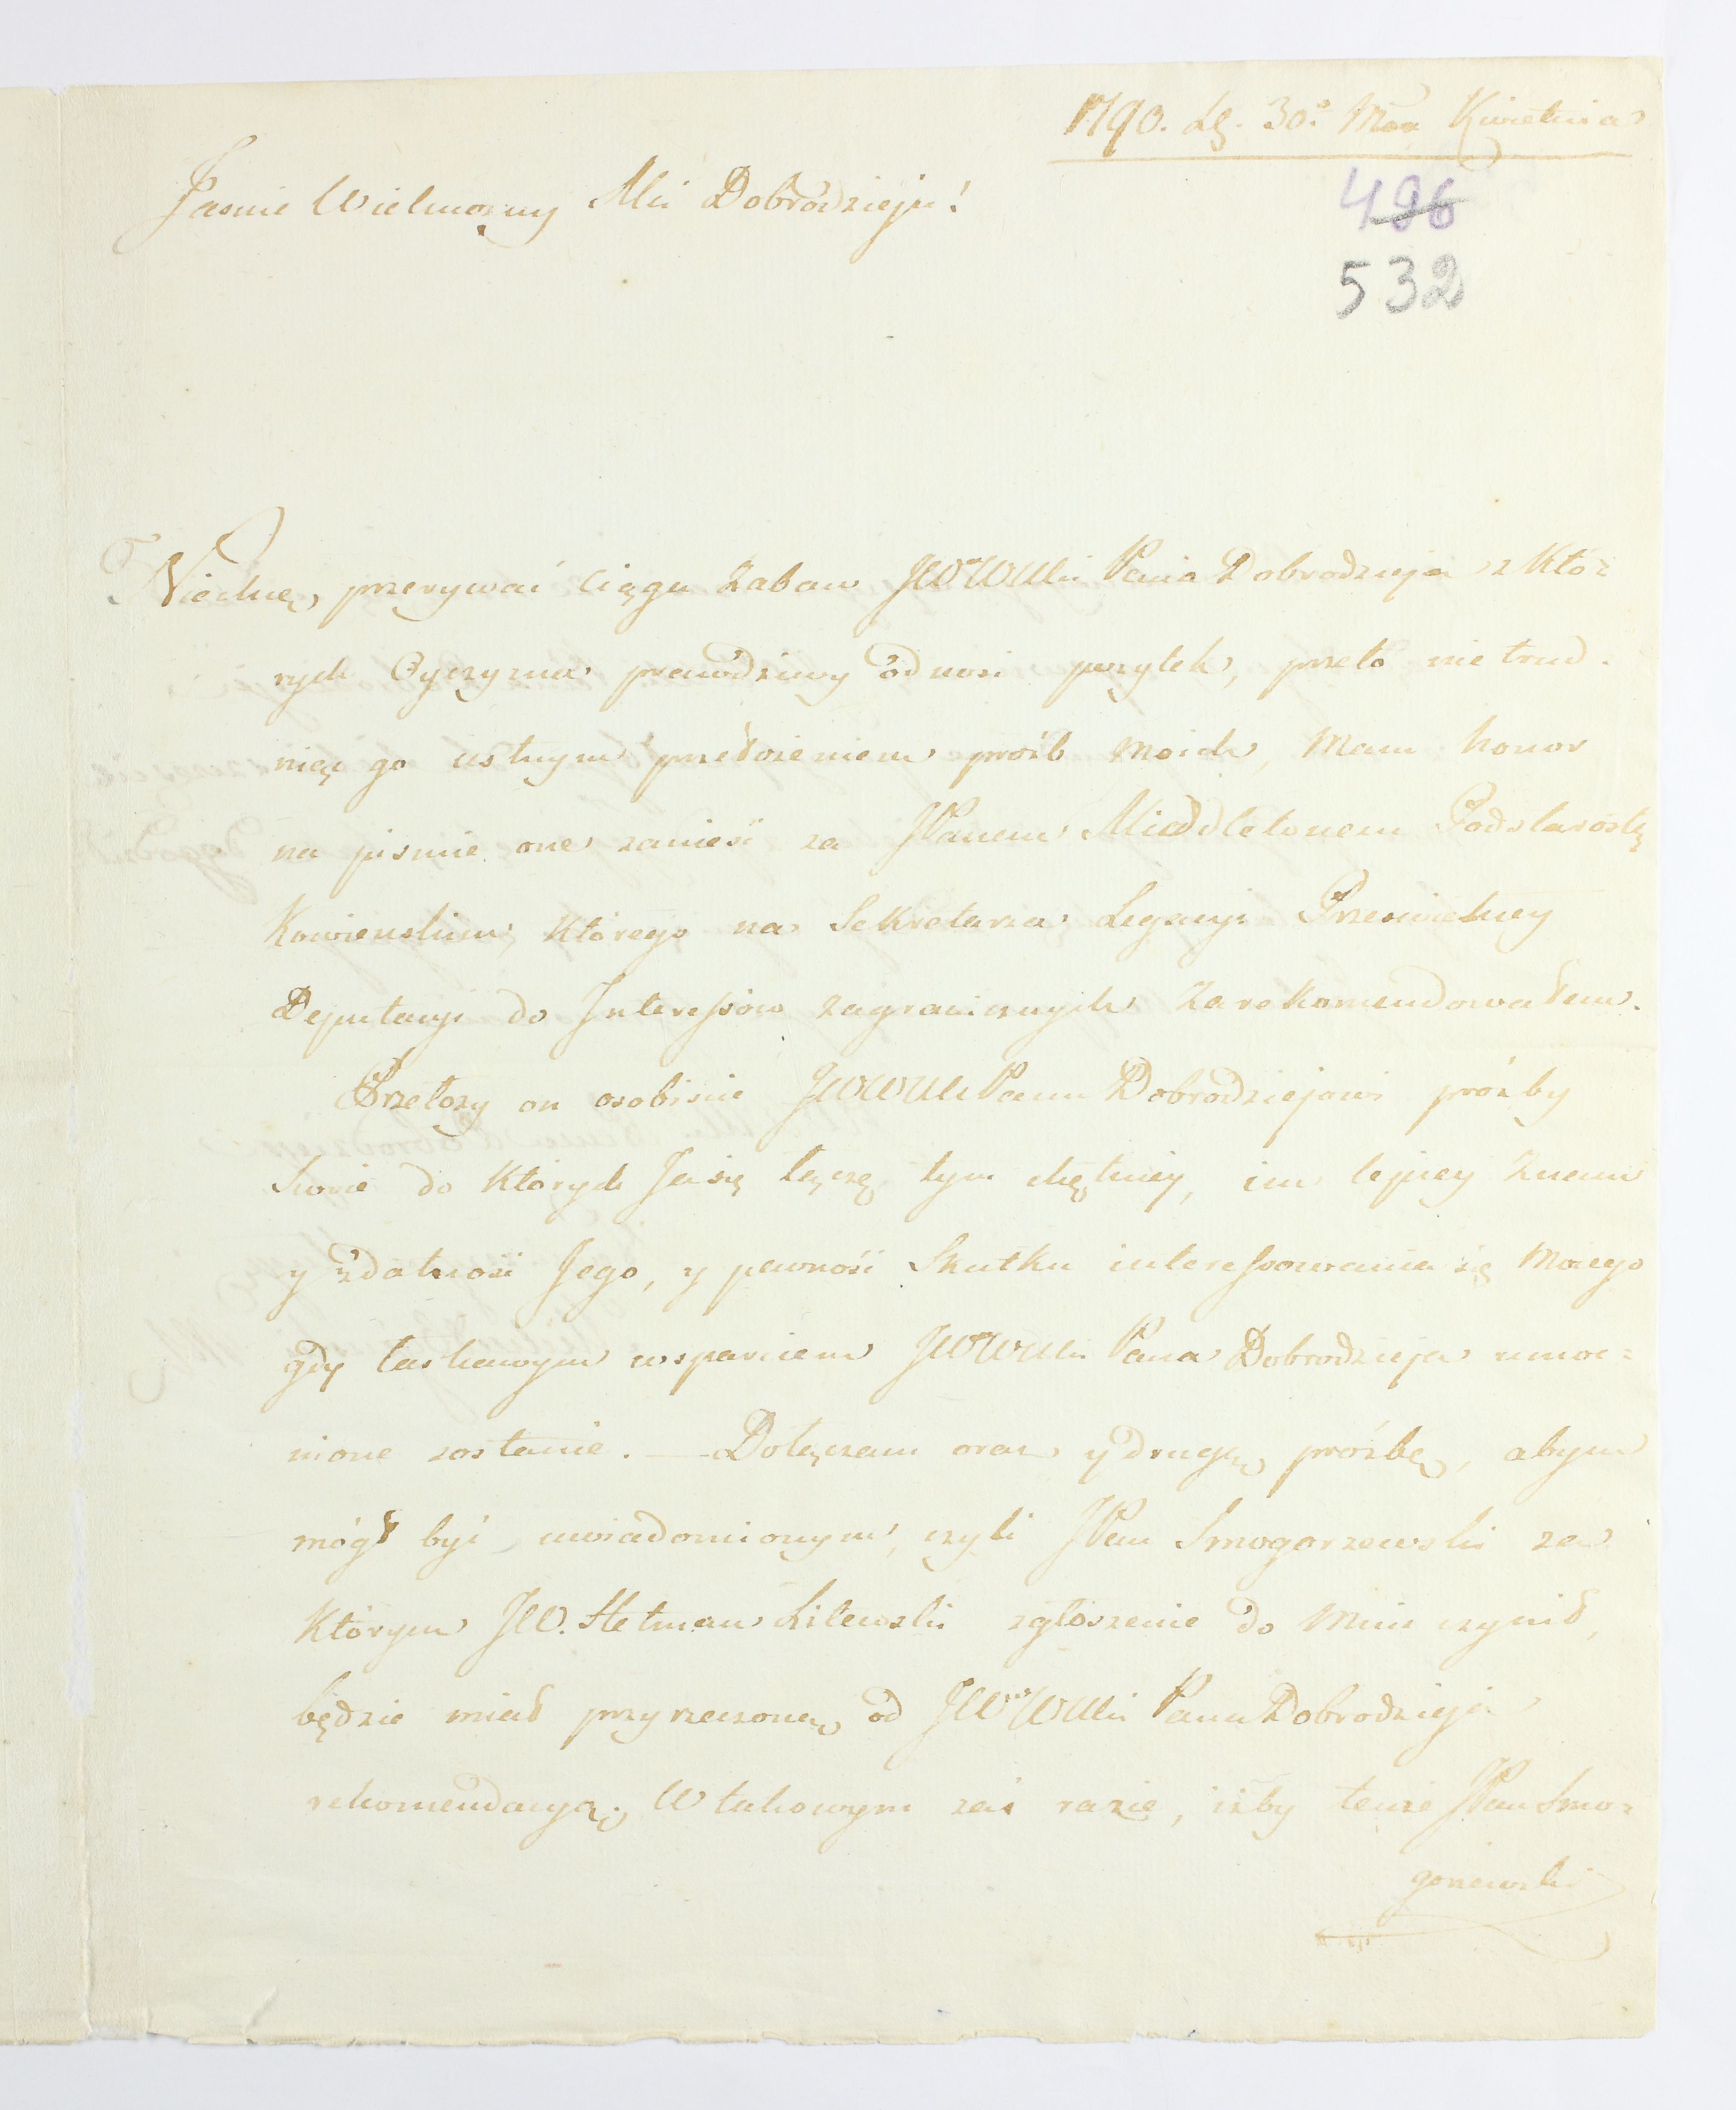 1790. D. 30. Mca Kwietnia
Jasnie Wielmożny Mci Dobrodzieju!
496
532
Niechcę przerywać ciągu Zabaw JWWMci Pana Dobrodzieja z Któ=
rych Oyczyzna prawdziwy odnosi pożytek, przeto nie trud-
niąc go ustnym przełożeniem prośb moich, mam honor
na pismie one zanieść za JPanem Middletonem Podstarostą
Kowienskim, którego na Sekretarza Legacyi Przeswietney
Deputacyi do Interessów zagranicznych zarekomendowałem.
Przełoży on osobiscie JWWMPanu Dobrodziejowi prośby
Swoie do Których Ja się łączę tym chętniey, im lepiey Znam
y zdatność Jego, y pewność Skutku interessowania się Moiego
gdy łaskawym wsparciem JWWMci Pana Dobrodzieja umoc=
nione zostanie. — Dołączam oraz y drugą proźbę, abym
mógł być uwiadomionym, czyli JPan Smogorzewski za
Którym JW. Hetman Litewski zgłoszenie do mnie czynił,
będzie miał przyrzeczoną od JWWMci Pana Dobrodzieja
rekomendacyą; W takowym zaś razie, iżby tenże JPan Smo=
gorzewski